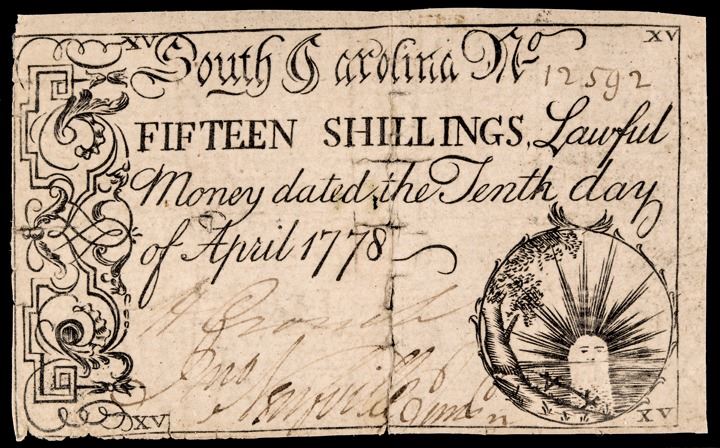 XV XV
South Carolina No. 12592
FIFTEEN SHILLINGS, Lawful
Money dated, the Tenth day
of April 1778
Jno
XV XV